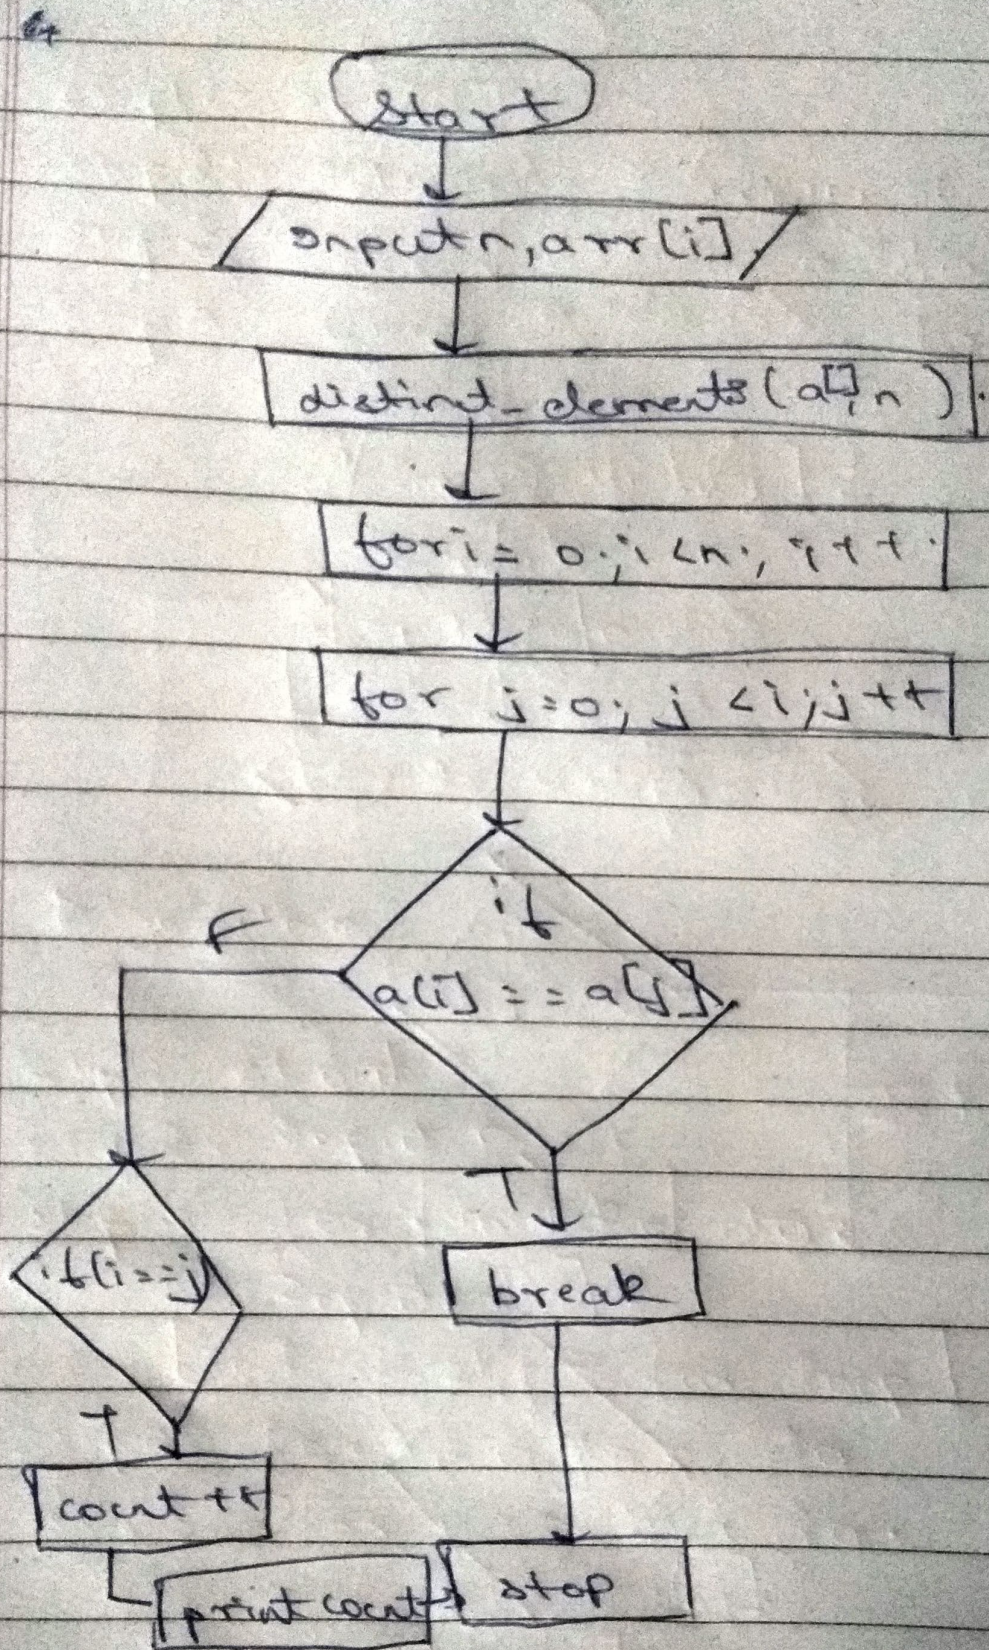 start
Input n, arr[i]
distinct_elements (a[], n )
for i = 0; i <n; i++
for j=0; j <i; j++
if
a[i] == a[j]
F
T
if(i==j)
break
T
count ++
print count
stop